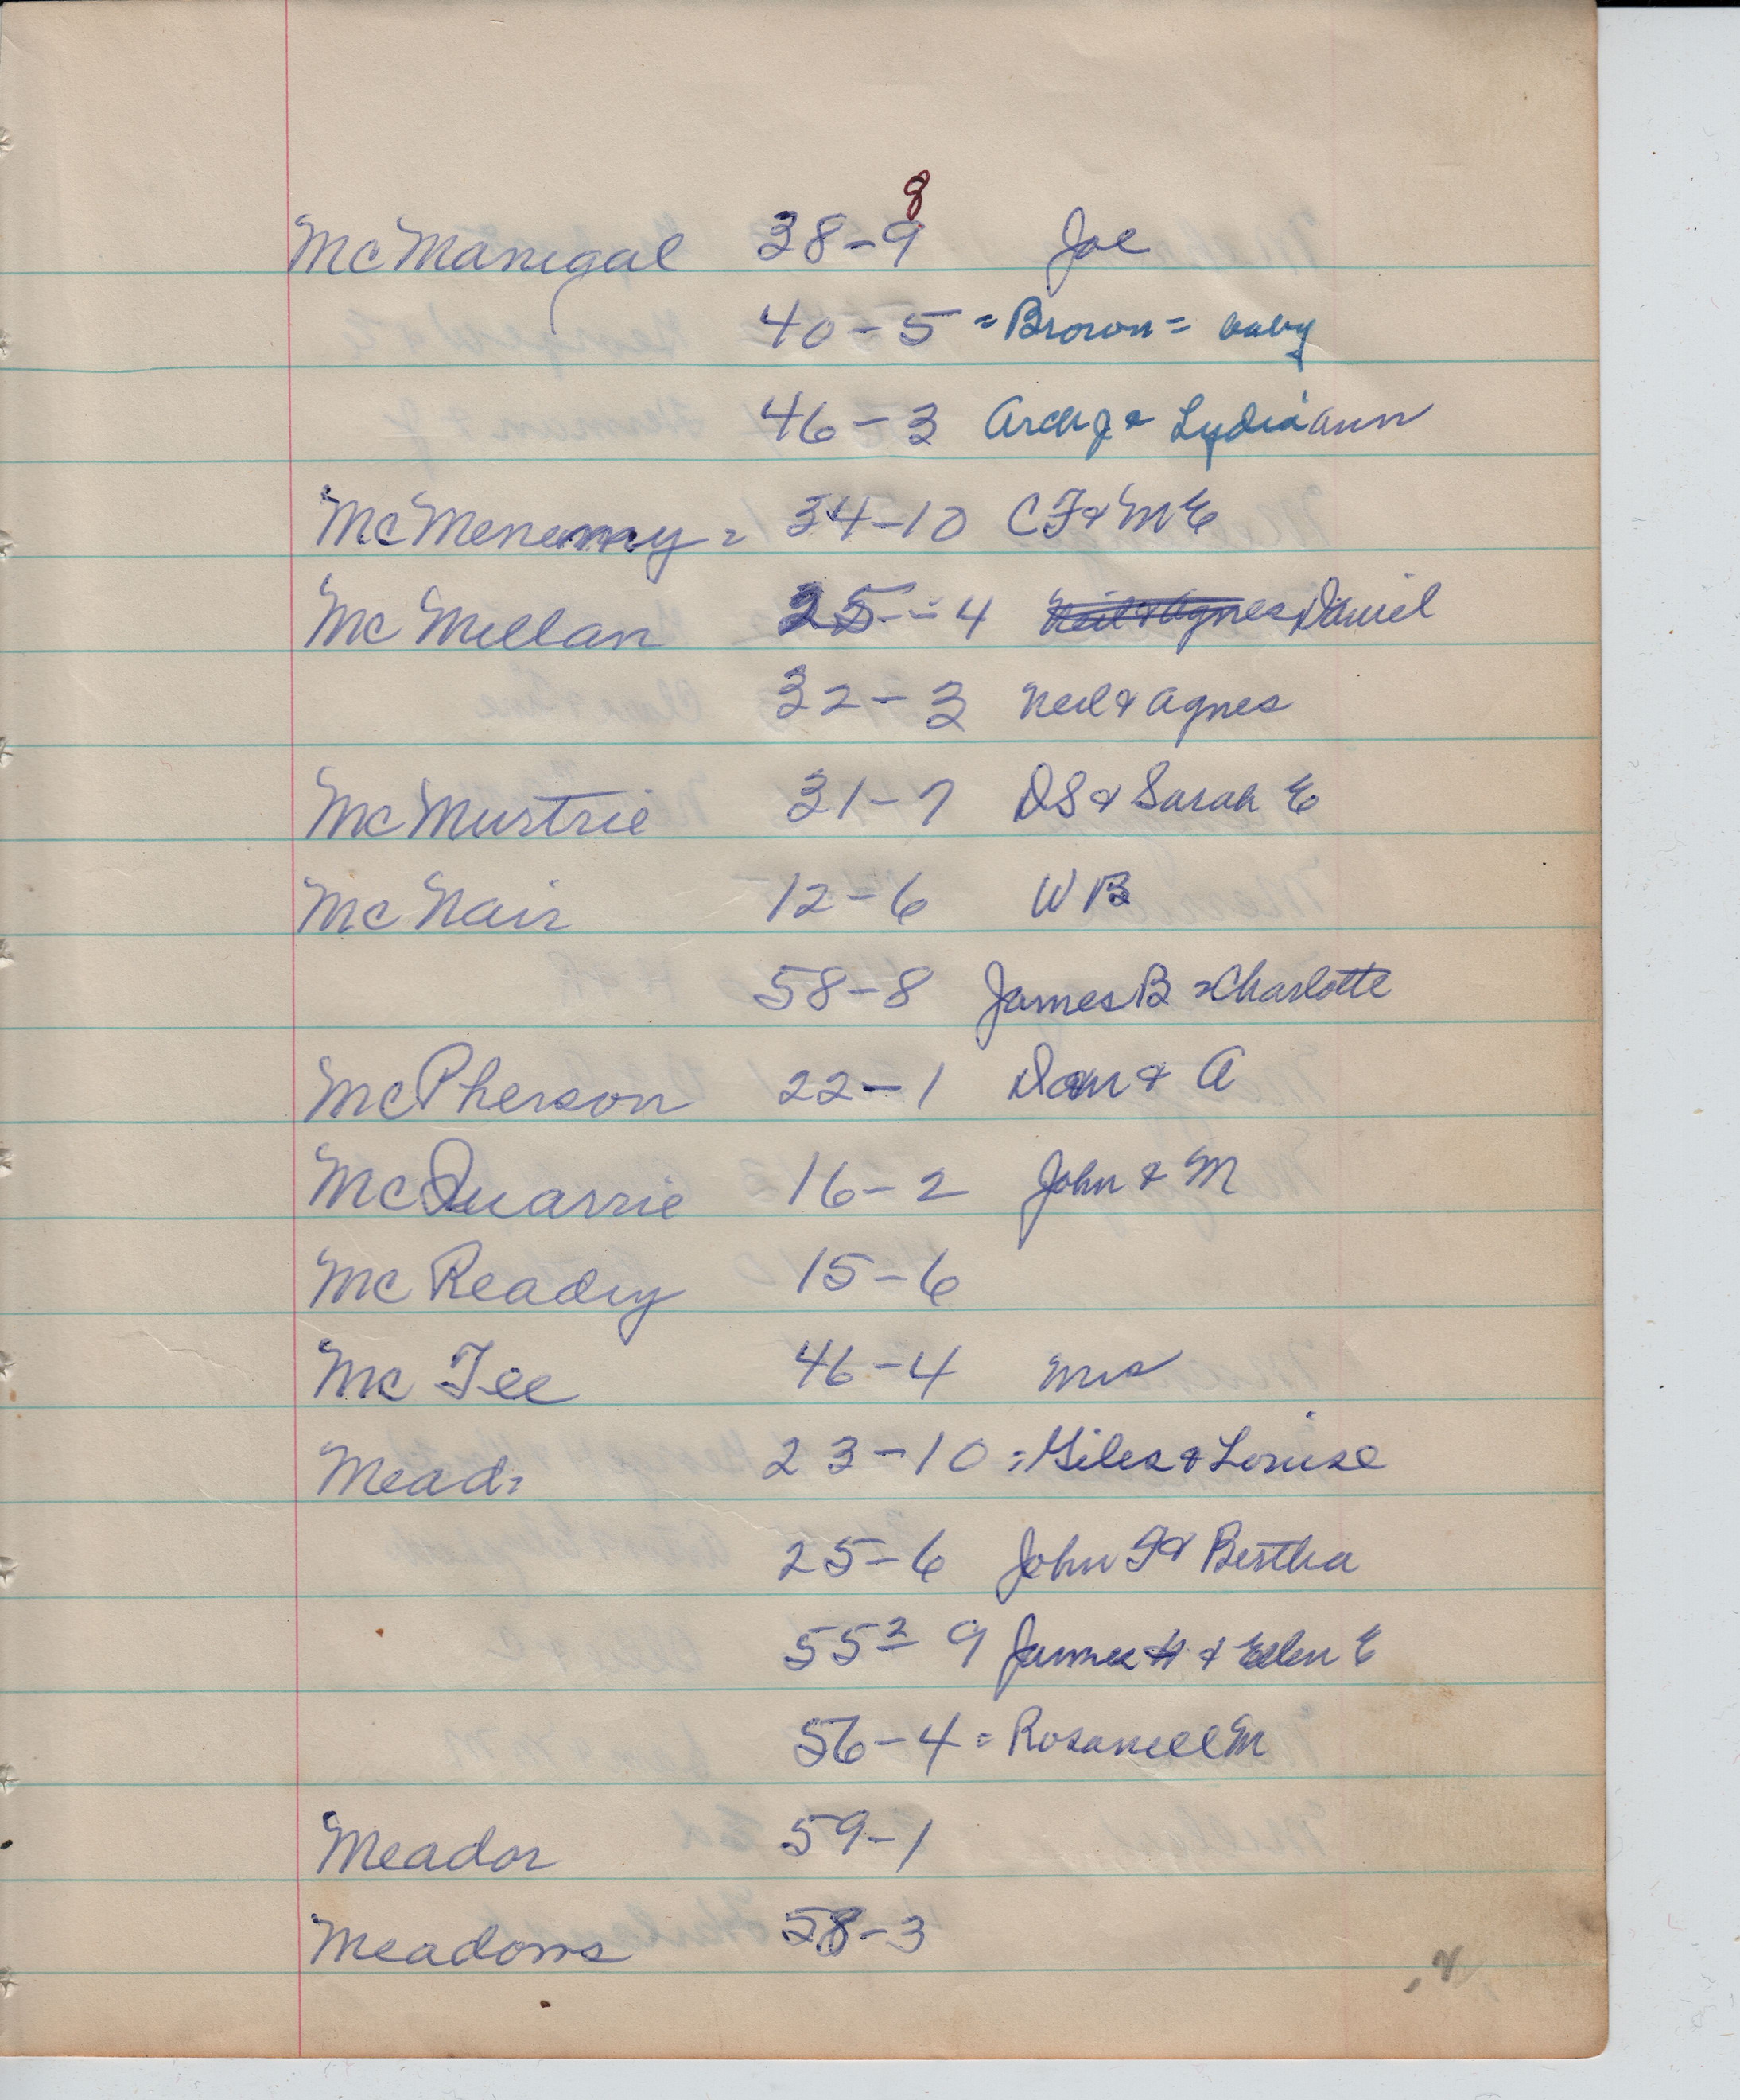 8
McManigal 38-9 Joe
40-5 = Brown = baby
46-3 Arch J & Lydia ann
McMenemny = 34-10 CF & ME
McMillan 25--4 Neil & Agnes Daniel
32-3 Neil & Agnes
McMurtrie 31-7 DS & Sarah E
McNair 12-6 WB
58-8 James B = Charlotte
McPherson 22-1 Dan & A
McQuarrie 16-2 John & M
McReady 15-6
McTee 46-4 Mrs
Mead = 23-10 = Giles & Louise
25-6 John & Bertha
55-9 James H & Ellen E
56-4 = Rosanell M
Meador 59-1
Meadows 58-3